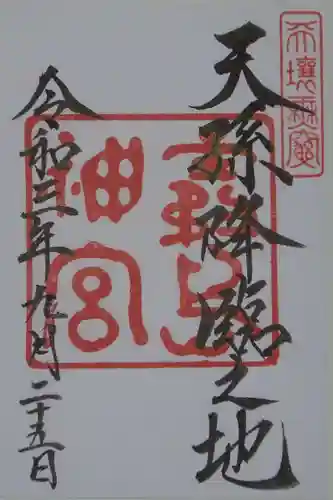 天壌無窮
天孫降臨之地
霧島神宮
令和三年九月二十五日